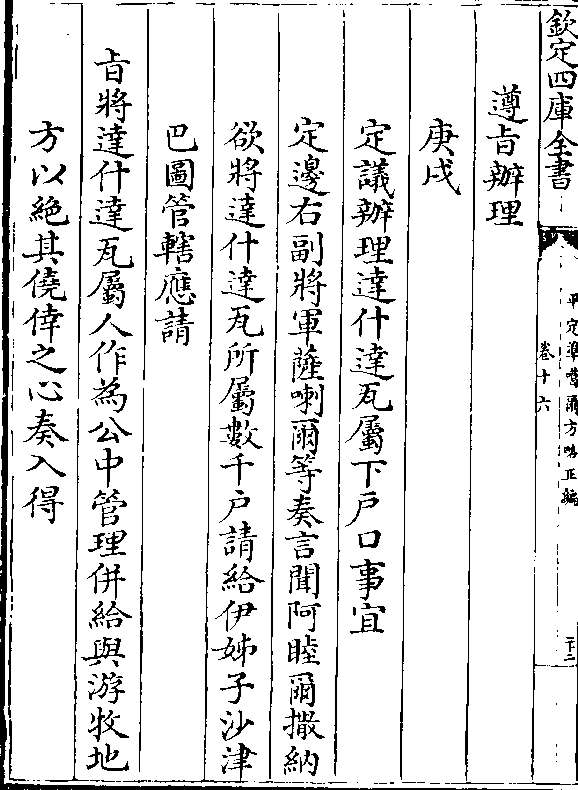 欽定四庫全書
平定準噶爾方略正編
卷十六
遵旨辦理
庚戌
定議辦理達什達瓦屬下戶口事宜
定邊右副將軍薩喇爾等奏言聞阿睦爾撒納
欲將達什達瓦所屬數千戶請給伊姊子沙津
巴圖管轄應請
旨將達什達瓦屬人作為公中管理併給與游牧地
方以絕其僥倖之心奏入得